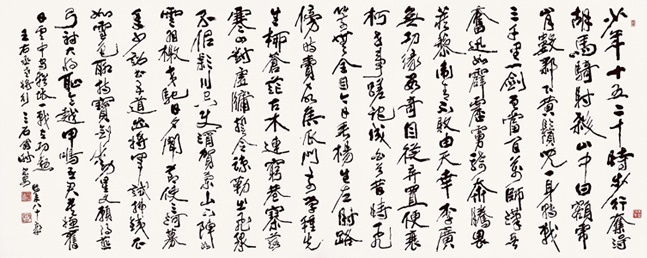 少年十五二十時步行奪得
胡馬騎射殺山中白額虎
肯數鄴下黃鬚兒一身轉戰
三千里一劍曾當百萬師漢兵
奮迅如霹靂虜騎奔騰畏
蒺藜衛青不敗由天幸李廣
無功緣數奇自從棄置便衰
朽世事蹉跎成白首昔時飛
箭無全目今日垂楊生左肘路
傍時賣故侯瓜門前學種先
生柳蒼茫古木連窮巷寥落
寒山對虛牖誓令疏勒出飛泉
不似潁川空使酒賀蘭山下陣如
雲羽檄交馳日夕聞節使三河募
年少詔書五道出將軍試拂鐵衣
如雪色聊持寶劍動星文願得燕
弓射大將恥令越甲鳴吾君莫嫌舊
日雲中守猶堪一戰立功勳
王右丞老將行